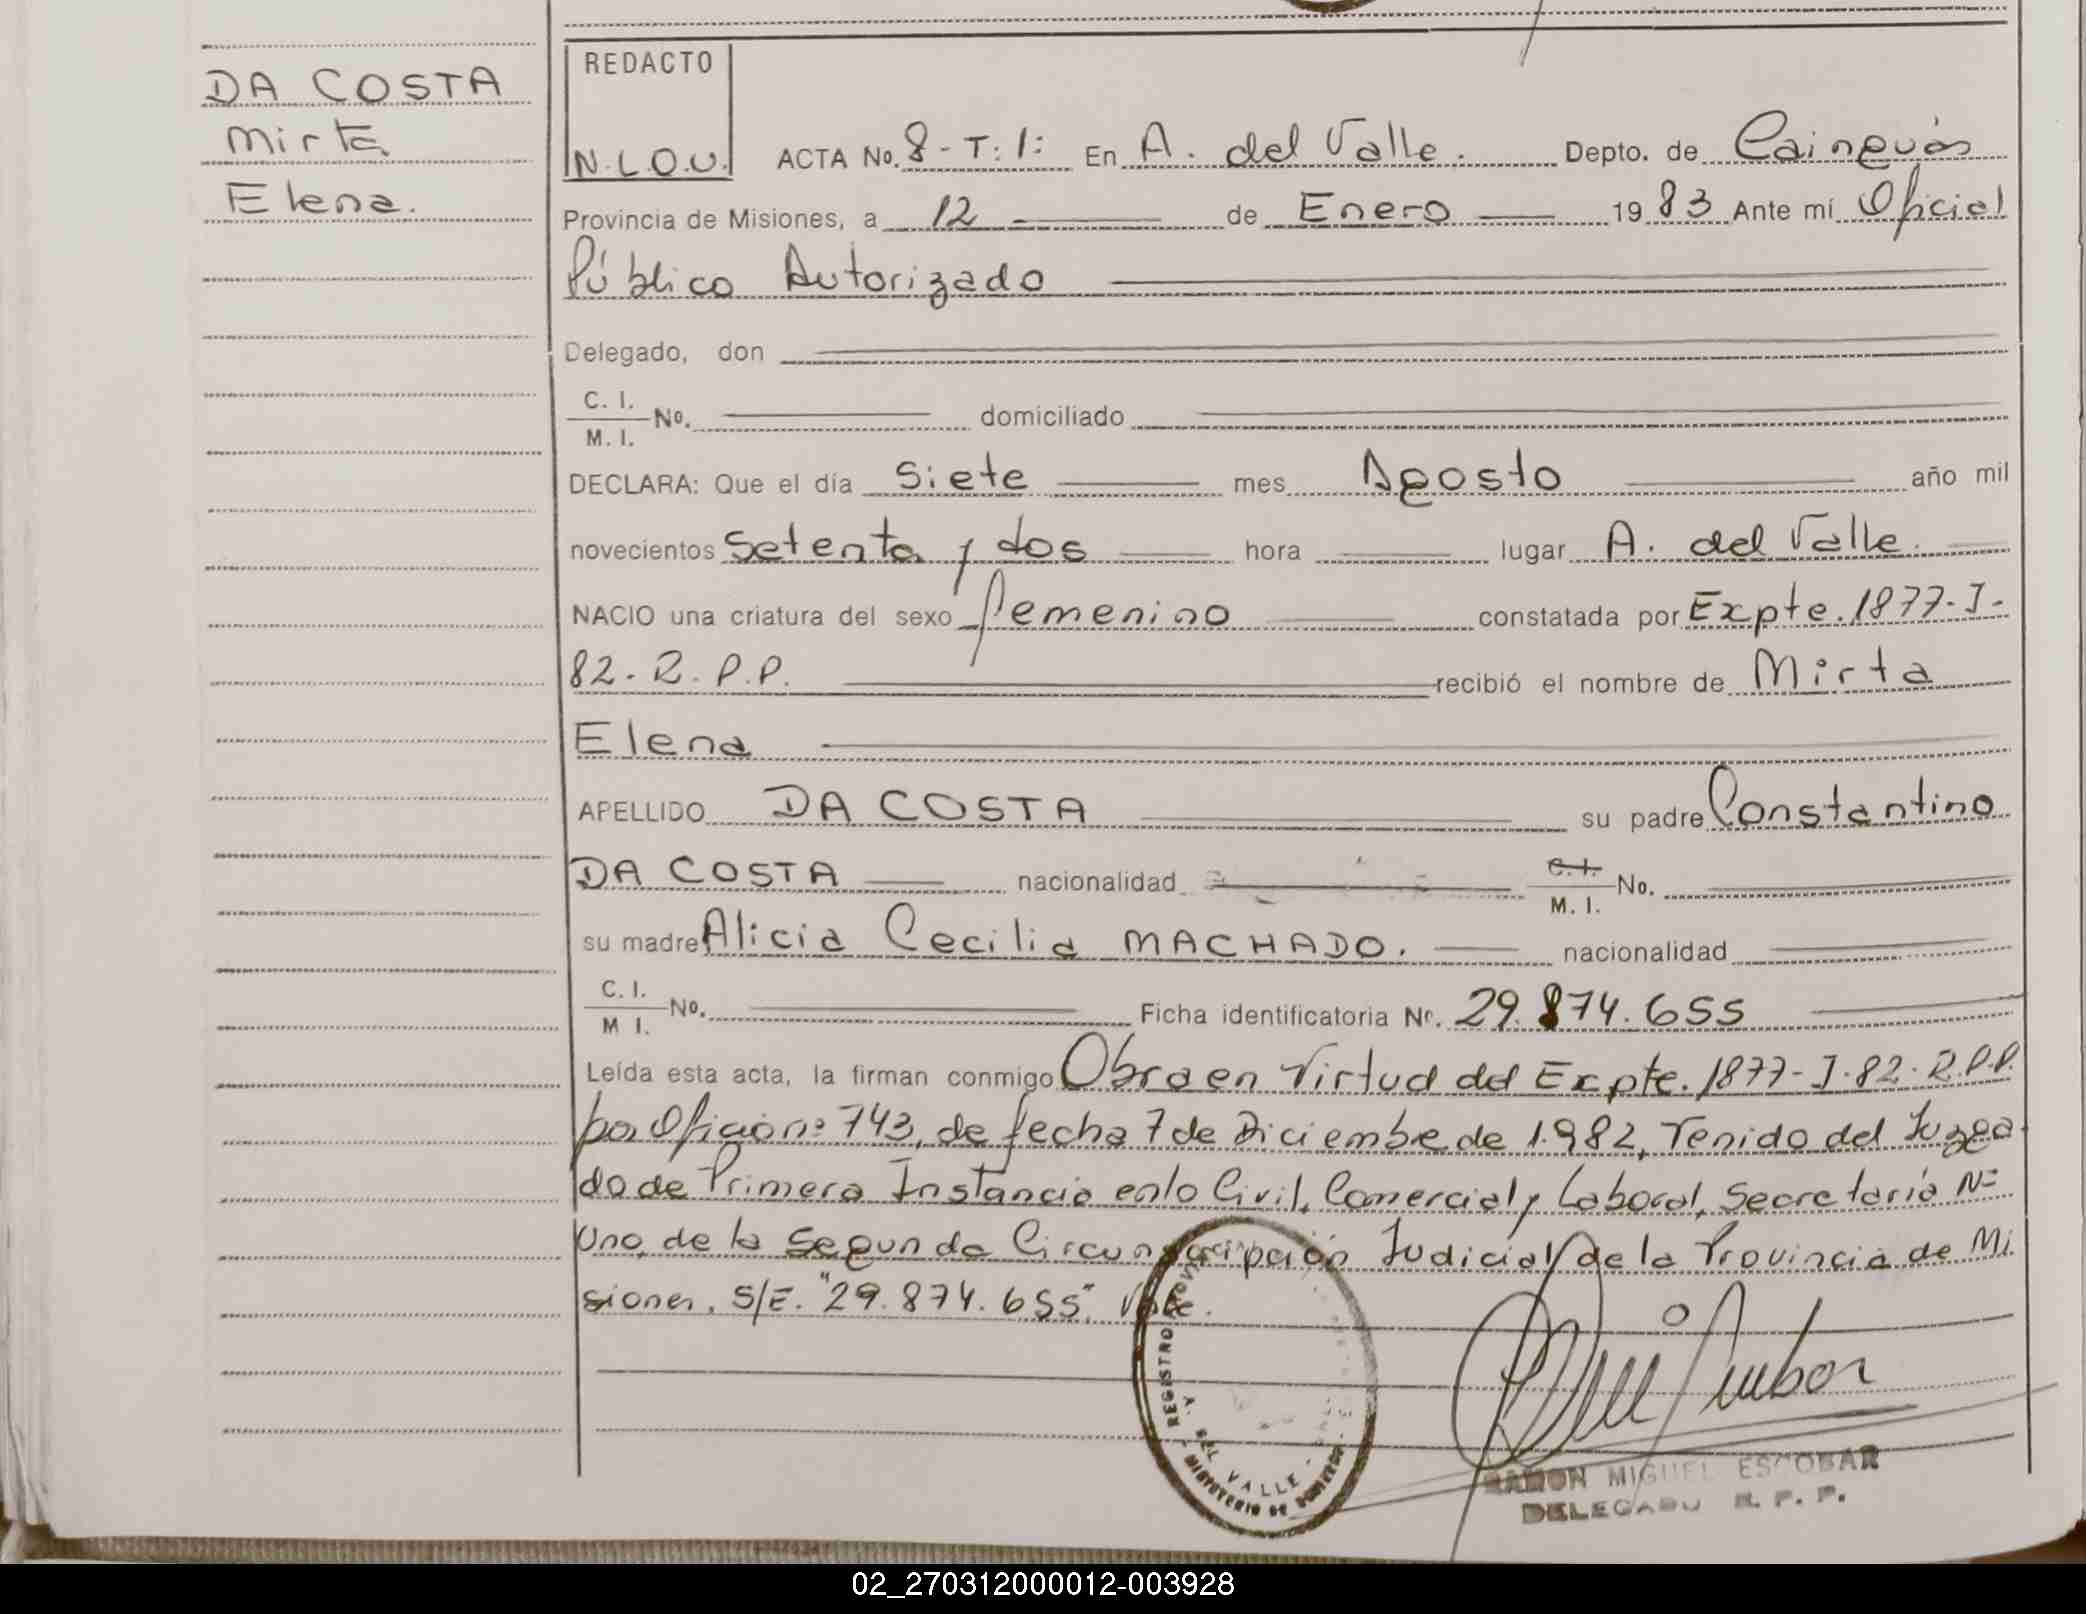 DA COSTA
Mirta
Elena.
REDACTO
N.L.O.U.
ACTA No. 8-T:1: En A. del Valle. Depto. de Cainguás
Provincia de Misiones, a 12 de Enero 1983 Ante mí Oficial
Público Autorizado
Delegado, don
C. I.
M. I. No. domiciliado
DECLARA: Que el día Siete mes Agosto año mil
novecientos Setenta y dos hora lugar A. del Valle.
NACIO una criatura del sexo femenino constatada por Expte. 1877-J-
82. R. P.P. recibió el nombre de Mirta
Elena
APELLIDO DA COSTA su padre Constantino
DA COSTA nacionalidad C.I. M. I. No.
su madre Alicia Cecilia MACHADO. nacionalidad
C. I.
M I. No. Ficha identificatoria Nº. 29.874.655
Leída esta acta, la firman conmigo Obra en Virtud del Expte. 1877-J-82. R.P.P.
por Oficio n: 743, de fecha 7 de Diciembre de 1.982, Tenido del Juzga
do de Primera Instancia en lo Civil, Comercial y Laboral, Secretaría Nº
Uno, de la Segunda Circunscripción Judicial de la Provincia de Mi
siones. S/E. "29.874.655" Vale.
REGISTRO
DEL VALLE - MINISTERIO DE GOBIERNO
RAMON MIGUEL ESCOBAR
DELEGADO R. P. P.
02_270312000012-003928